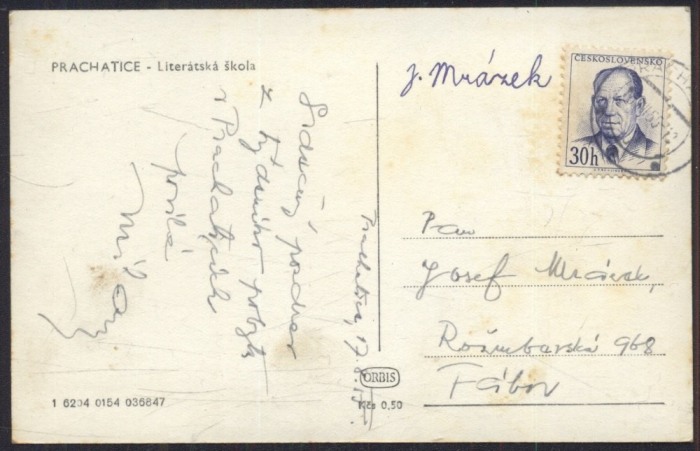 PRACHATICE - Literátská škola
J. Mrázek
ČESKOSLOVENSKO
30h
Srdečný pozdrav
z týdenního pobytu
v Prachaticích
posílá
Milan
Prachatice, 17.
Pan
Josef Mrázek,
Rožmberská 968
Tábor
ORBIS
Kčs 0,50
1 6204 0154 036847